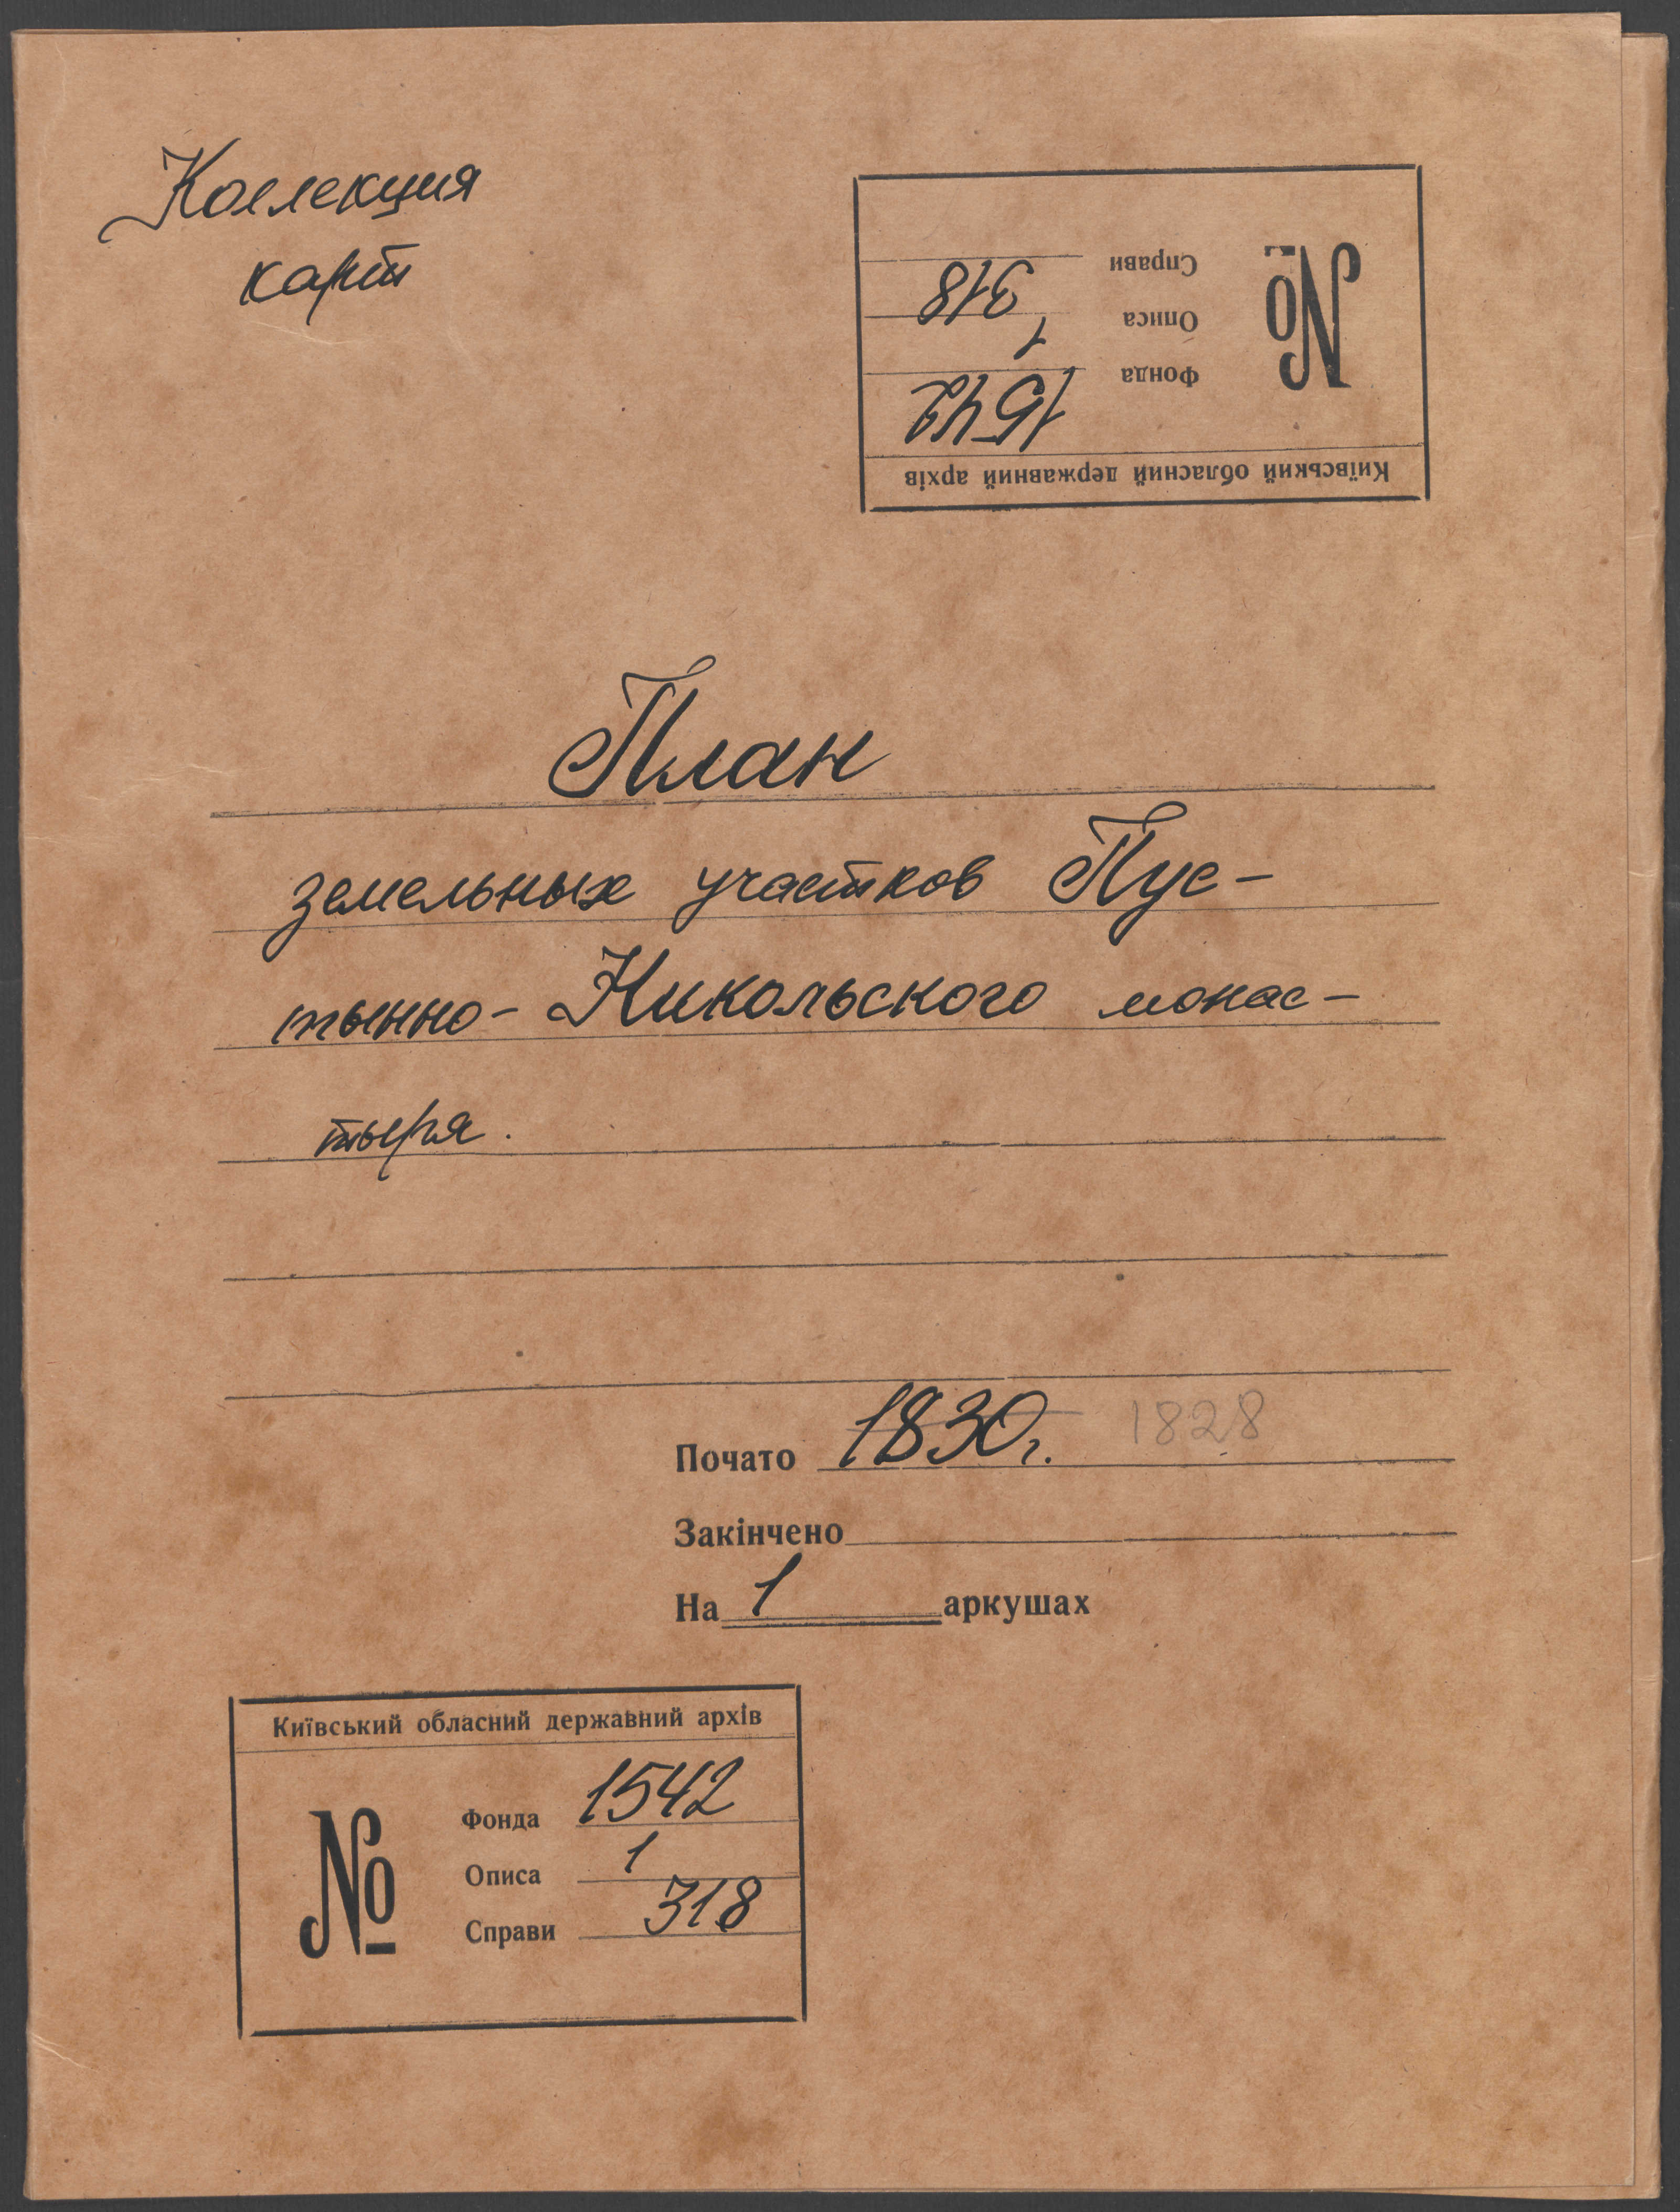 Коллекция
карт
Київський обласний державний архів
№
Фонда 1542
Описа 1
Справи 318
План
земельных участков Пус-
тынно-Никольского монас-
тыря.
Почато 1830г. 1828
Закінчено
На 1 аркушах
Київський обласний державний архів
№
Фонда 1542
Описа 1
Справи 318